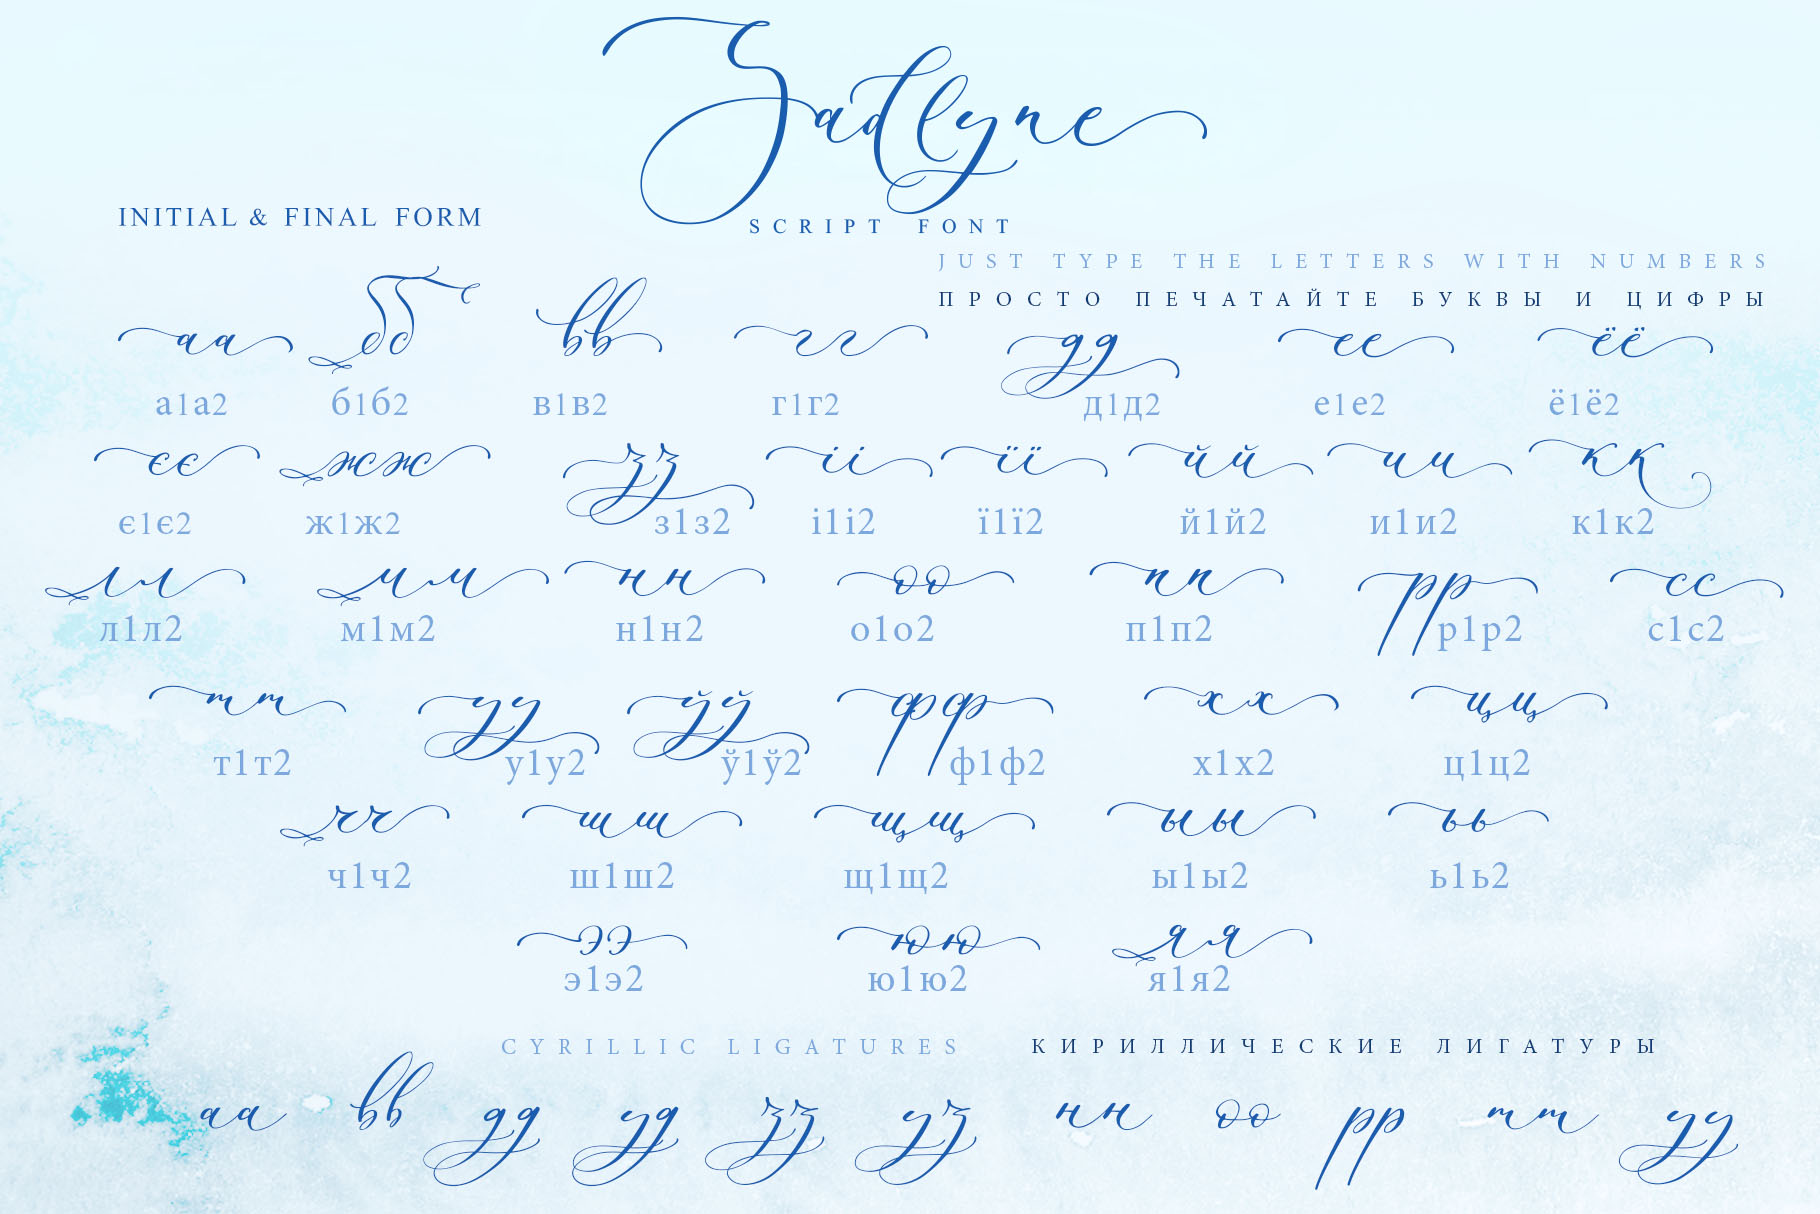 Zadlyne
SCRIPT FONT
INITIAL & FINAL FORM
JUST TYPE THE LETTERS WITH NUMBERS
ПРОСТО ПЕЧАТАЙТЕ БУКВЫ И ЦИФРЫ
аа бб вв гг дд ее ёё
а1а2 б1б2 в1в2 г1г2 д1д2 е1е2 ё1ё2
єє жж зз іі її йй ии кк
є1є2 ж1ж2 з1з2 і1і2 ї1ї2 й1й2 и1и2 к1к2
лл мм нн оо пп рр сс
л1л2 м1м2 н1н2 о1о2 п1п2 р1р2 с1с2
тт уу ўў фф хх цц
т1т2 у1у2 ў1ў2 ф1ф2 х1х2 ц1ц2
чч шш щщ ыы ьь
ч1ч2 ш1ш2 щ1щ2 ы1ы2 ь1ь2
ээ юю яя
э1э2 ю1ю2 я1я2
CYRILLIC LIGATURES КИРИЛЛИЧЕСКИЕ ЛИГАТУРЫ
аа вв дд уд зз уз нн оо рр тт уу